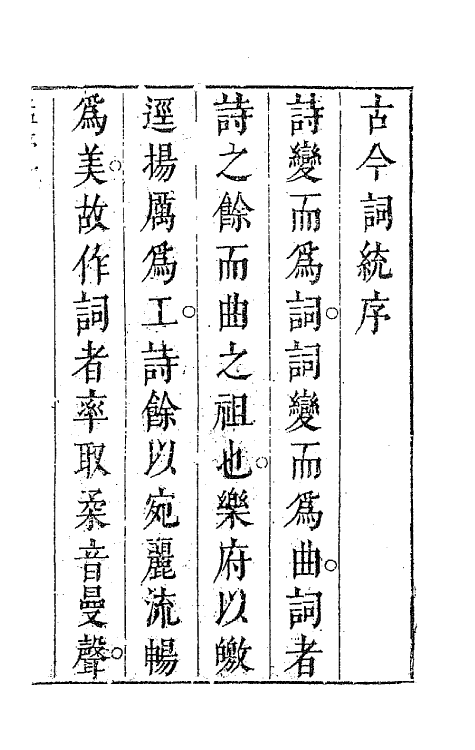 古今詞統序
詩變而爲詞。詞變而爲曲。詞者
詩之餘而曲之祖也。樂府以皦
逕揚厲爲工。詩餘以宛麗流暢
爲美。故作詞者率取柔音曼聲。